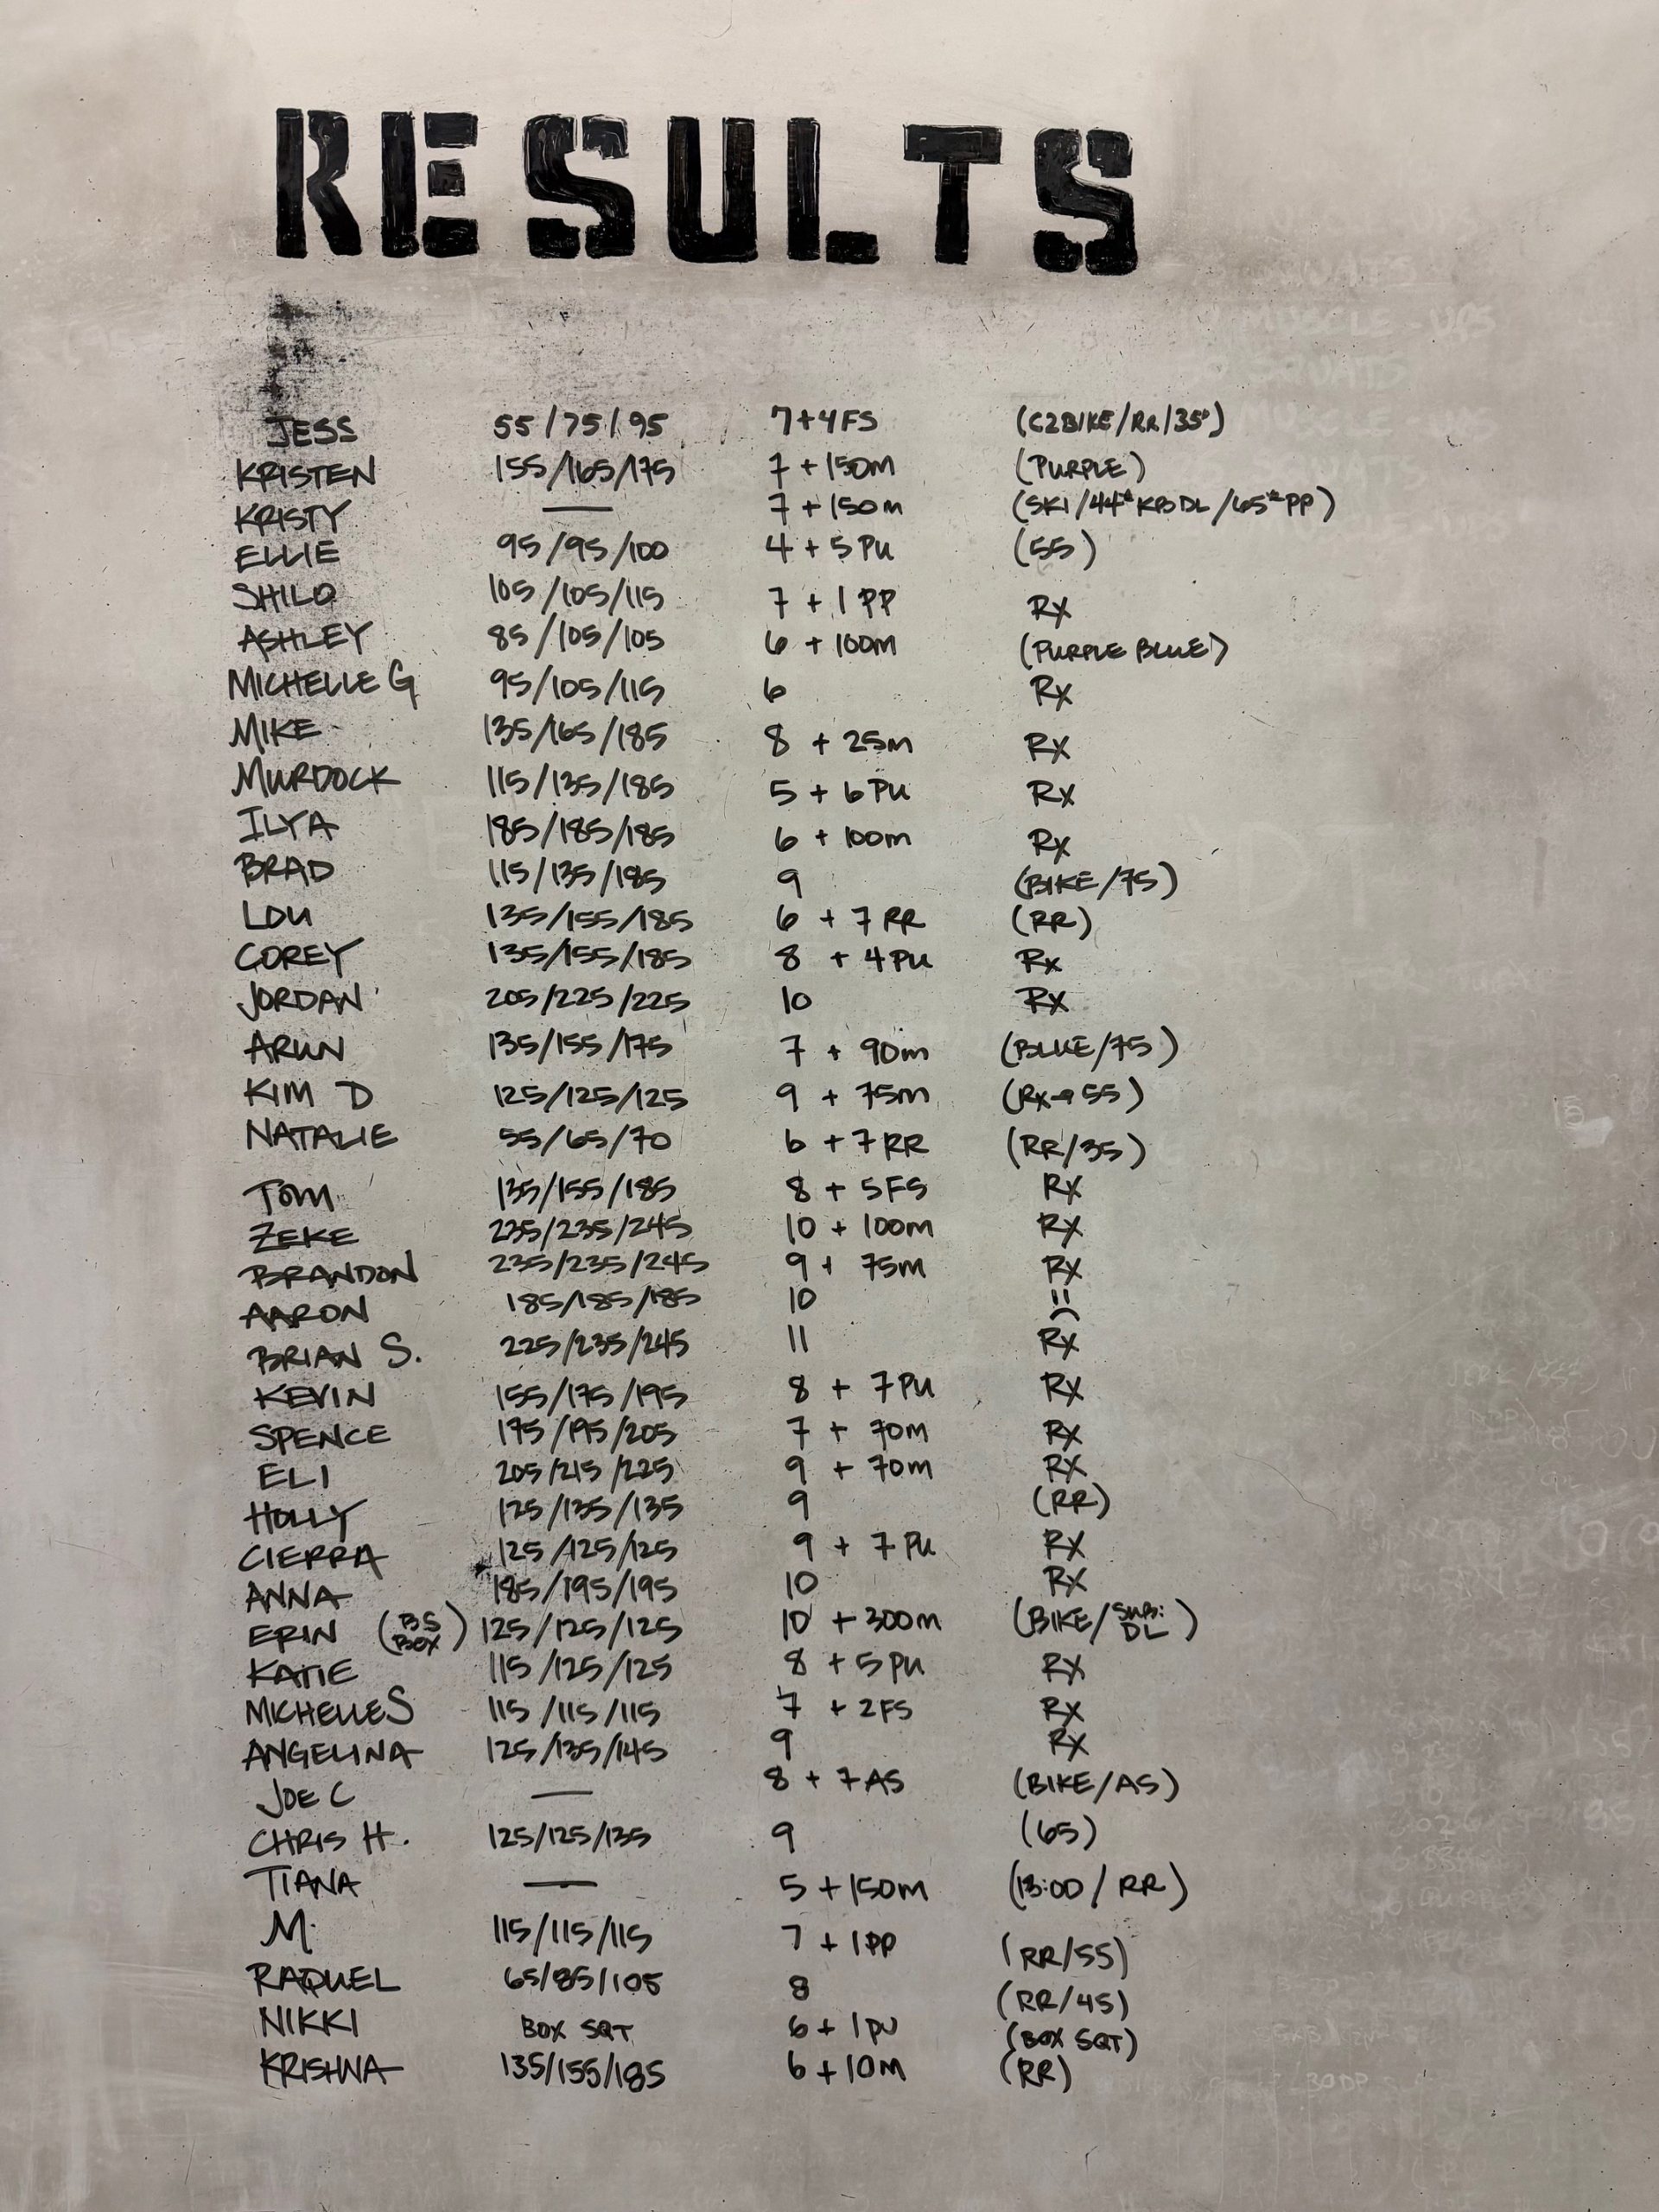 RESULTS
JESS 55/75/95 7+4FS (C2BIKE/RR/35#)
KRISTEN 155/165/175 7+150M (PURPLE)
KRISTY — 7+150M (SKI/44# KBDL/65# PP)
ELLIE 95/95/100 4+5PU (55)
SHILO 105/105/115 7+1PP RX
ASHLEY 85/105/105 6+100M (PURPLE BLUE)
MICHELLE G 95/105/115 6 RX
MIKE 135/165/185 8 + 25M RX
MURDOCK 115/135/185 5 + 6PU RX
ILYA 185/185/185 6 + 100M RX
BRAD 115/135/185 9 (BIKE/75)
LOU 135/155/185 6 + 7RR (RR)
COREY 135/155/185 8 + 4PU RX
JORDAN 205/225/225 10 RX
ARUN 135/155/175 7 + 90M (BLUE/75)
KIM D 125/125/125 9 + 75M (RX→55)
NATALIE 55/65/70 6 + 7RR (RR/35)
TOM 135/155/185 8 + 5FS RX
ZEKE 235/235/245 10 + 100M RX
BRANDON 235/235/245 9 + 75M RX
AARON 185/185/185 10
BRIAN S. 225/235/245 11 RX
KEVIN 155/175/195 8 + 7PU RX
SPENCE 175/195/205 7 + 70M RX
ELI 205/215/225 9 + 70M RX
HOLLY 125/135/135 9 (RR)
CIERRA 125/125/125 9 + 7PU RX
ANNA 185/195/195 10 RX
ERIN (BS BOX) 125/125/125 10 + 300M (BIKE/SUB: DL)
KATIE 115/125/125 8 + 5PU RX
MICHELLE S 115/115/115 7 + 2FS RX
ANGELINA 125/135/145 9 RX
JOE C — 8 + 7AS (BIKE/AS)
CHRIS H. 125/125/135 9 (65)
TIANA — 5 + 150M (13:00/RR)
M. 115/115/115 7 + 1PP (RR/55)
RAQUEL 65/85/105 8 (RR/45)
NIKKI BOX SQT 6 + 1PU (BOX SQT)
KRISHNA 135/155/185 6 + 10M (RR)
MUSCLE-UPS